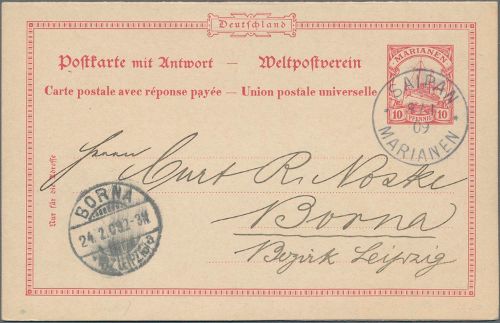 Deutschland
Postkarte mit Antwort — Weltpostverein
Carte postale avec réponse payée — Union postale universelle
MARIANEN
10 PFENNIG 10
SAIPAN
09
MARIANEN
Nur für die Adresse
Herrn Curt R. Noske
Borna
Bezirk Leipzig
BORNA
24. 2. 09. 2-3N